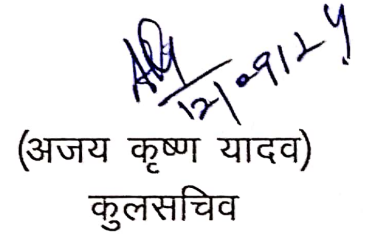 12/09/24
(अजय कृष्ण यादव)
कुलसचिव